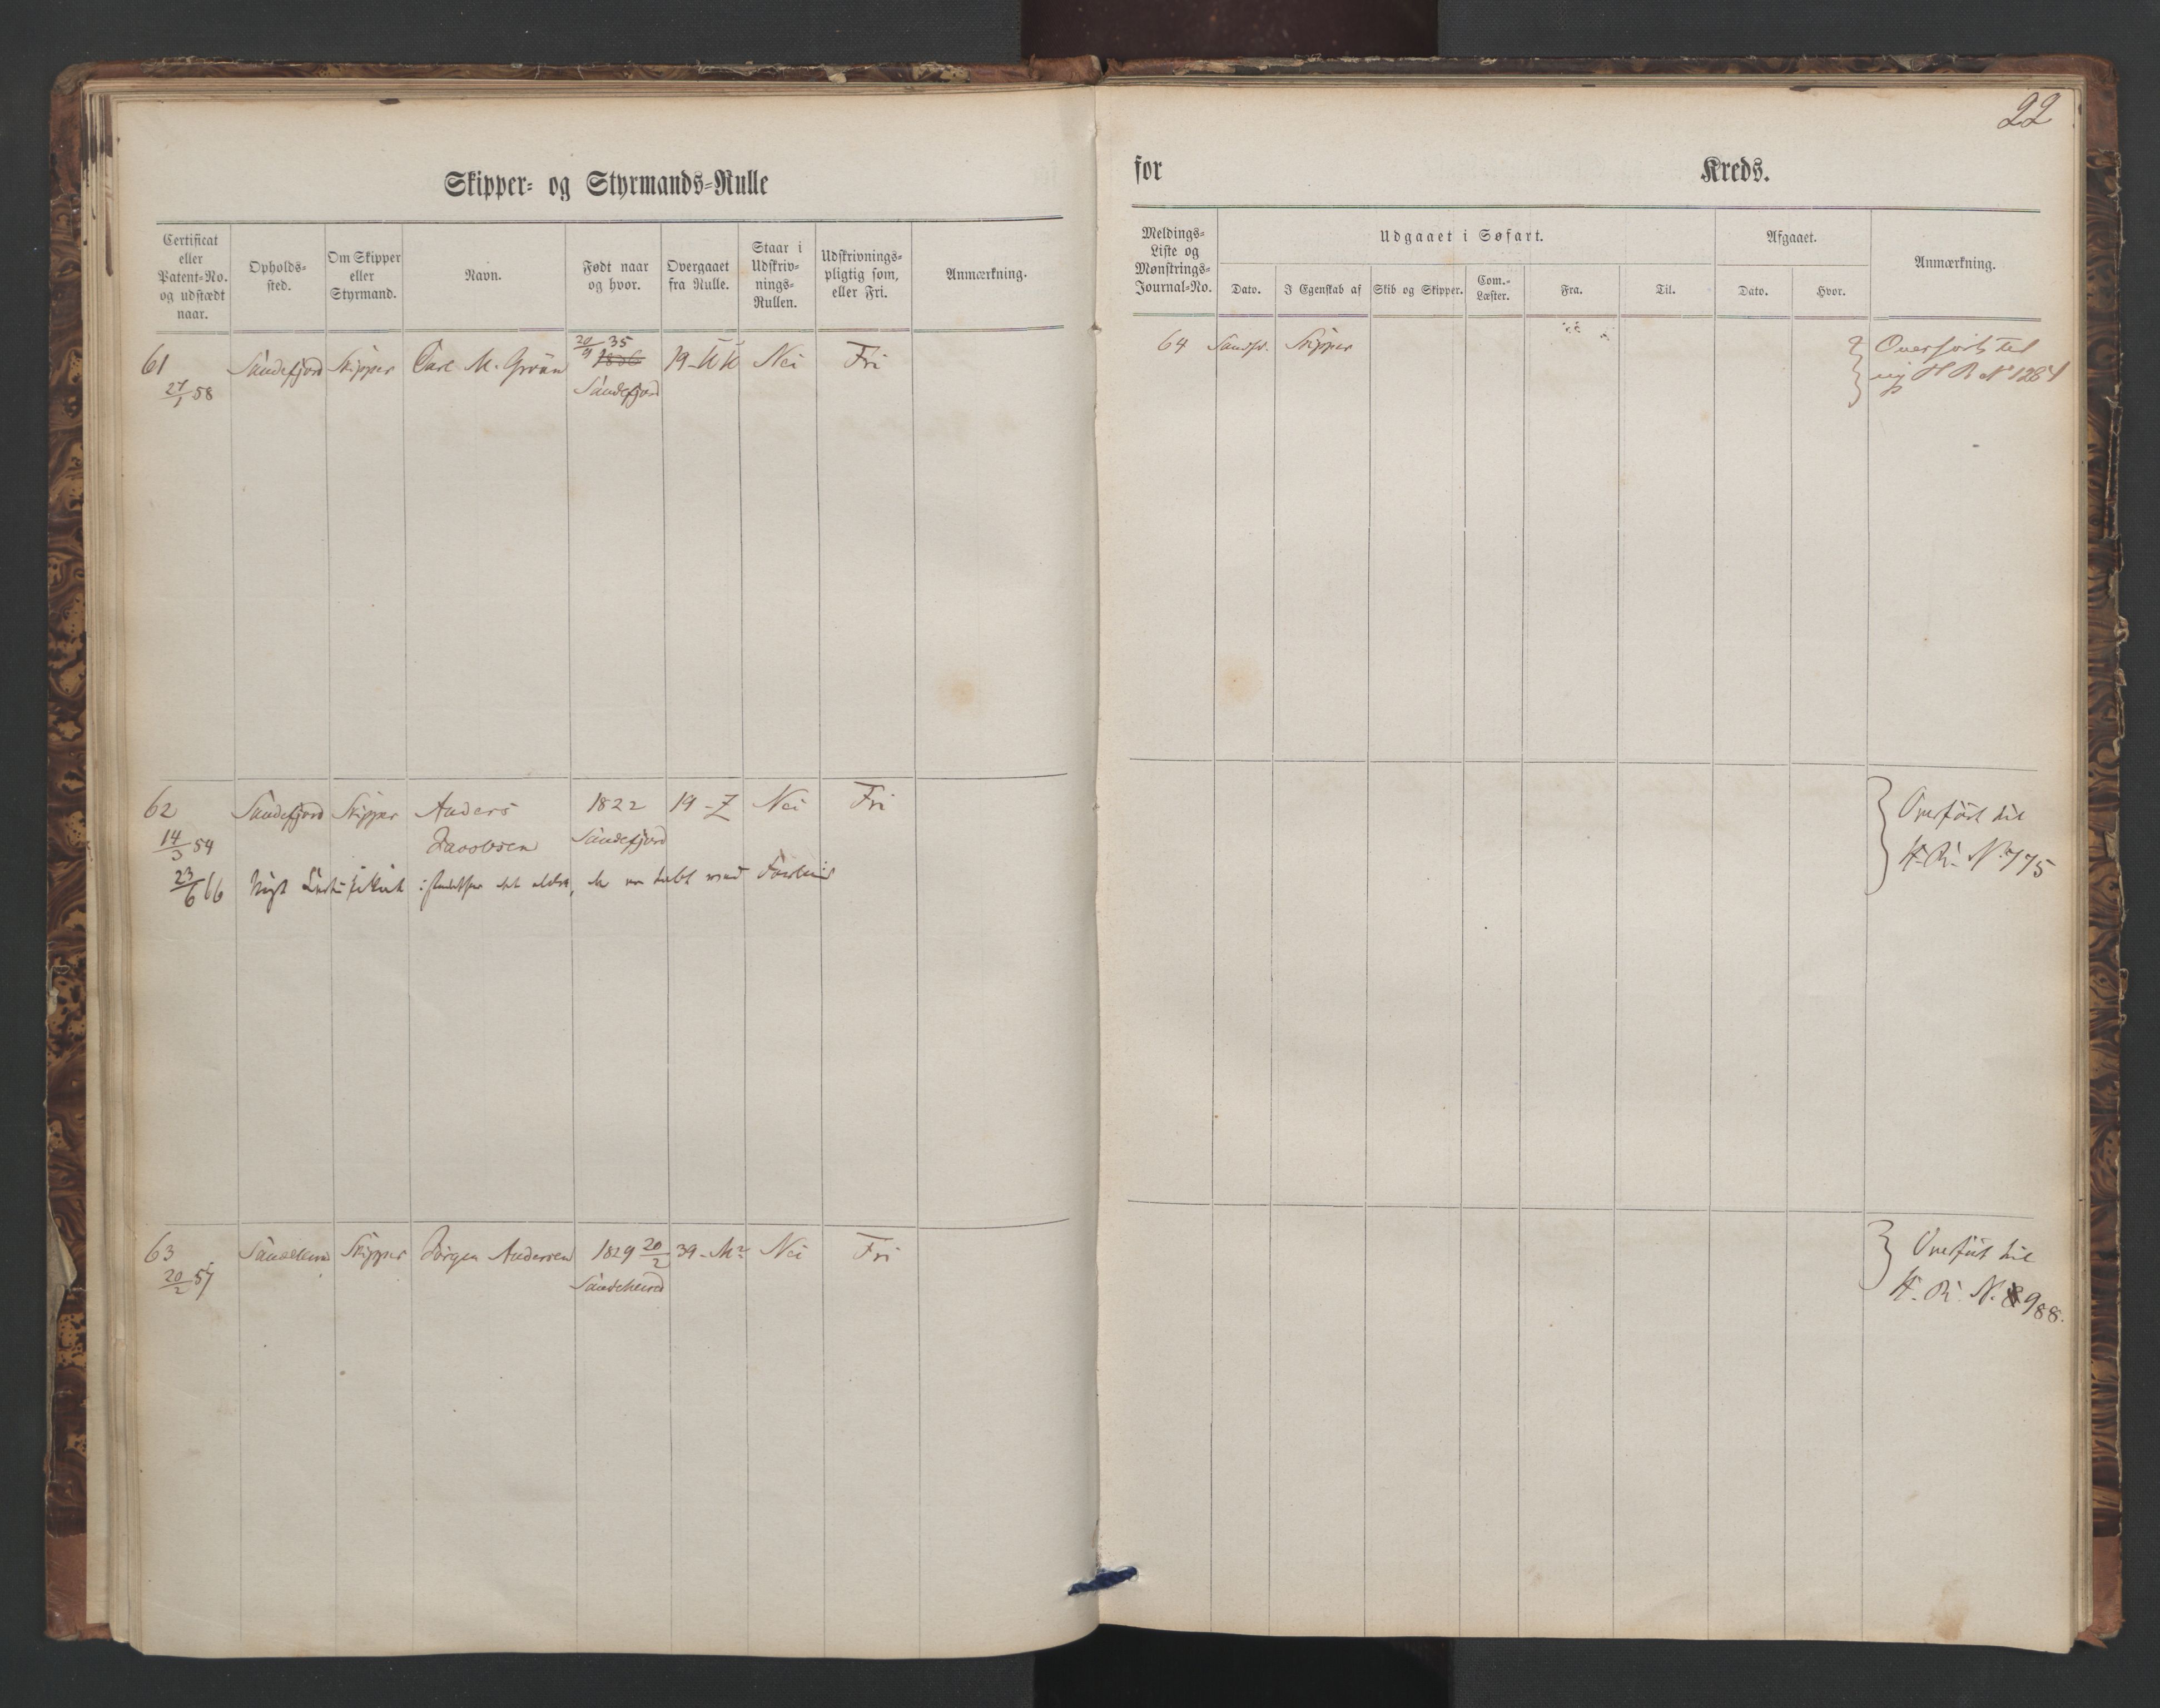 22
Skipper- og Styrmands-Rulle
for Kreds.
Certificat eller Patent-No. og udstædt naar.
Opholds-sted.
Om Skipper eller Styrmand.
Navn.
Født naar og hvor.
Overgaaet fra Rulle.
Staar i Udskriv-nings-Rullen.
Udskrivnings-pligtig som, eller Fri.
Anmærkning.
Meldings-Liste og Mønstrings-Journal-No.
Udgaaet i Søfart.
Dato.
I Egenskab af
Skib og Skipper.
Com.-Læster.
Fra.
Til.
Afgaaet.
Dato.
Hvor.
Anmærkning.
61 Sandefjord Skipper Carl M. Grøun 20/9 35 1836 19-UU Nei Fri
27/1 58 Sandefjord
64 Sandfj. Skipper
Overført til
ny H R N 1264
62 Sandefjord Skipper Anders 1822 19-Z Nei Fri
14/3 54 Jacobsen Sandefjord
23/6 66 Nyt Certifikat istedetfor det ældre, der er tabt ved Forliis
Overført til
H. R. No 775
63 Sandeherred Skipper Jørgen Andersen 1829 20/2 39-M2 Nei Fri
20/2 57 Sandeherred
Overført til
H. R. N. 988.